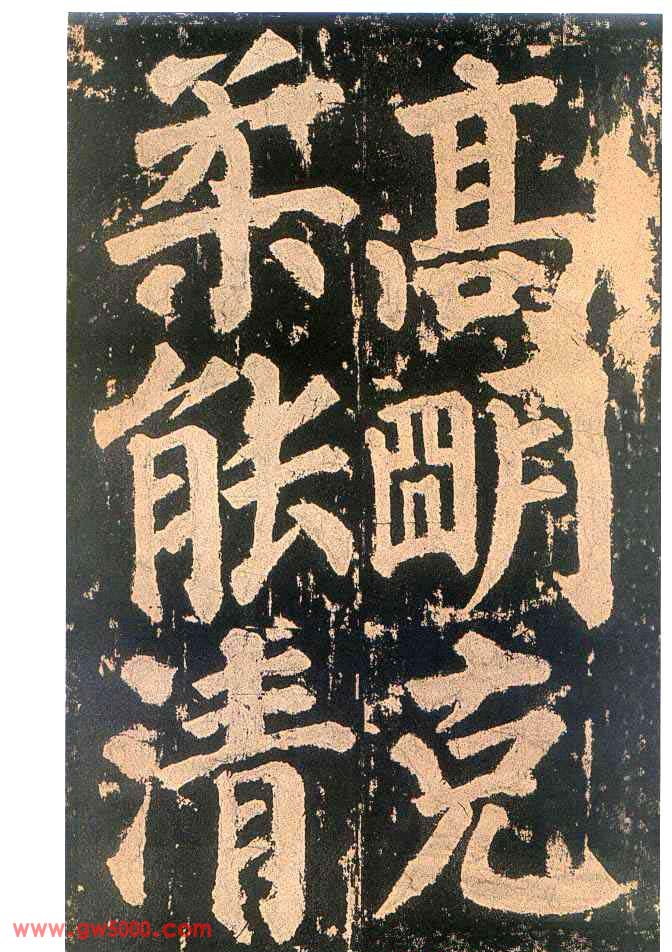 高明克
柔能清
www.gw5000.com